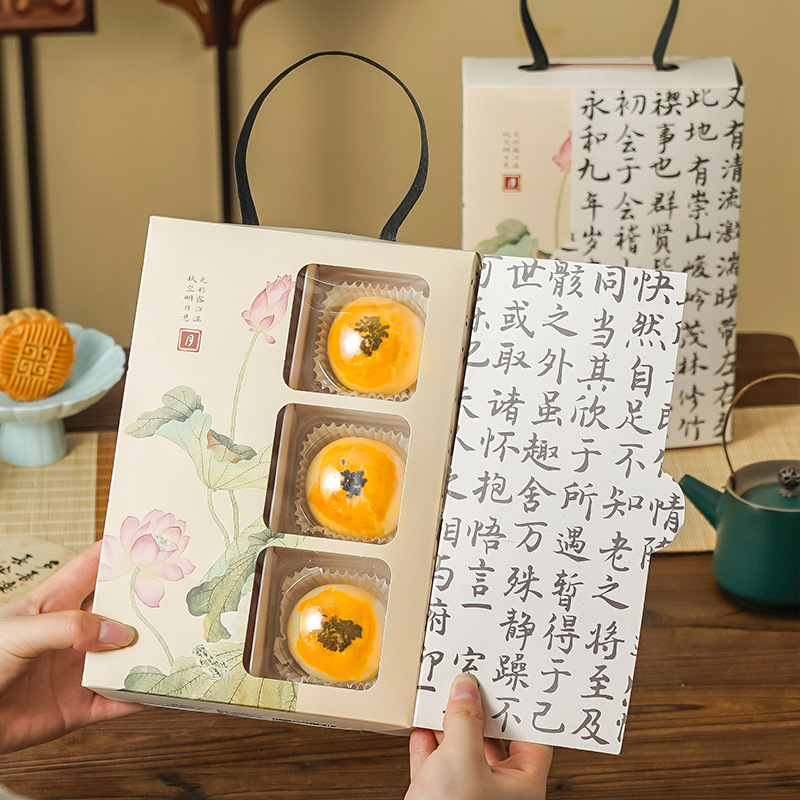 秋空明月悬
光彩露沾湿
月
情
快然自足不知老之将至及
同当其欣于所遇暂得于己
骸之外虽趣舍万殊静躁不
世或取诸怀抱悟言一室
又有清流激湍映带左
此地有崇山峻岭茂林修竹
禊事也群贤
初会于会稽
永和九年岁
月